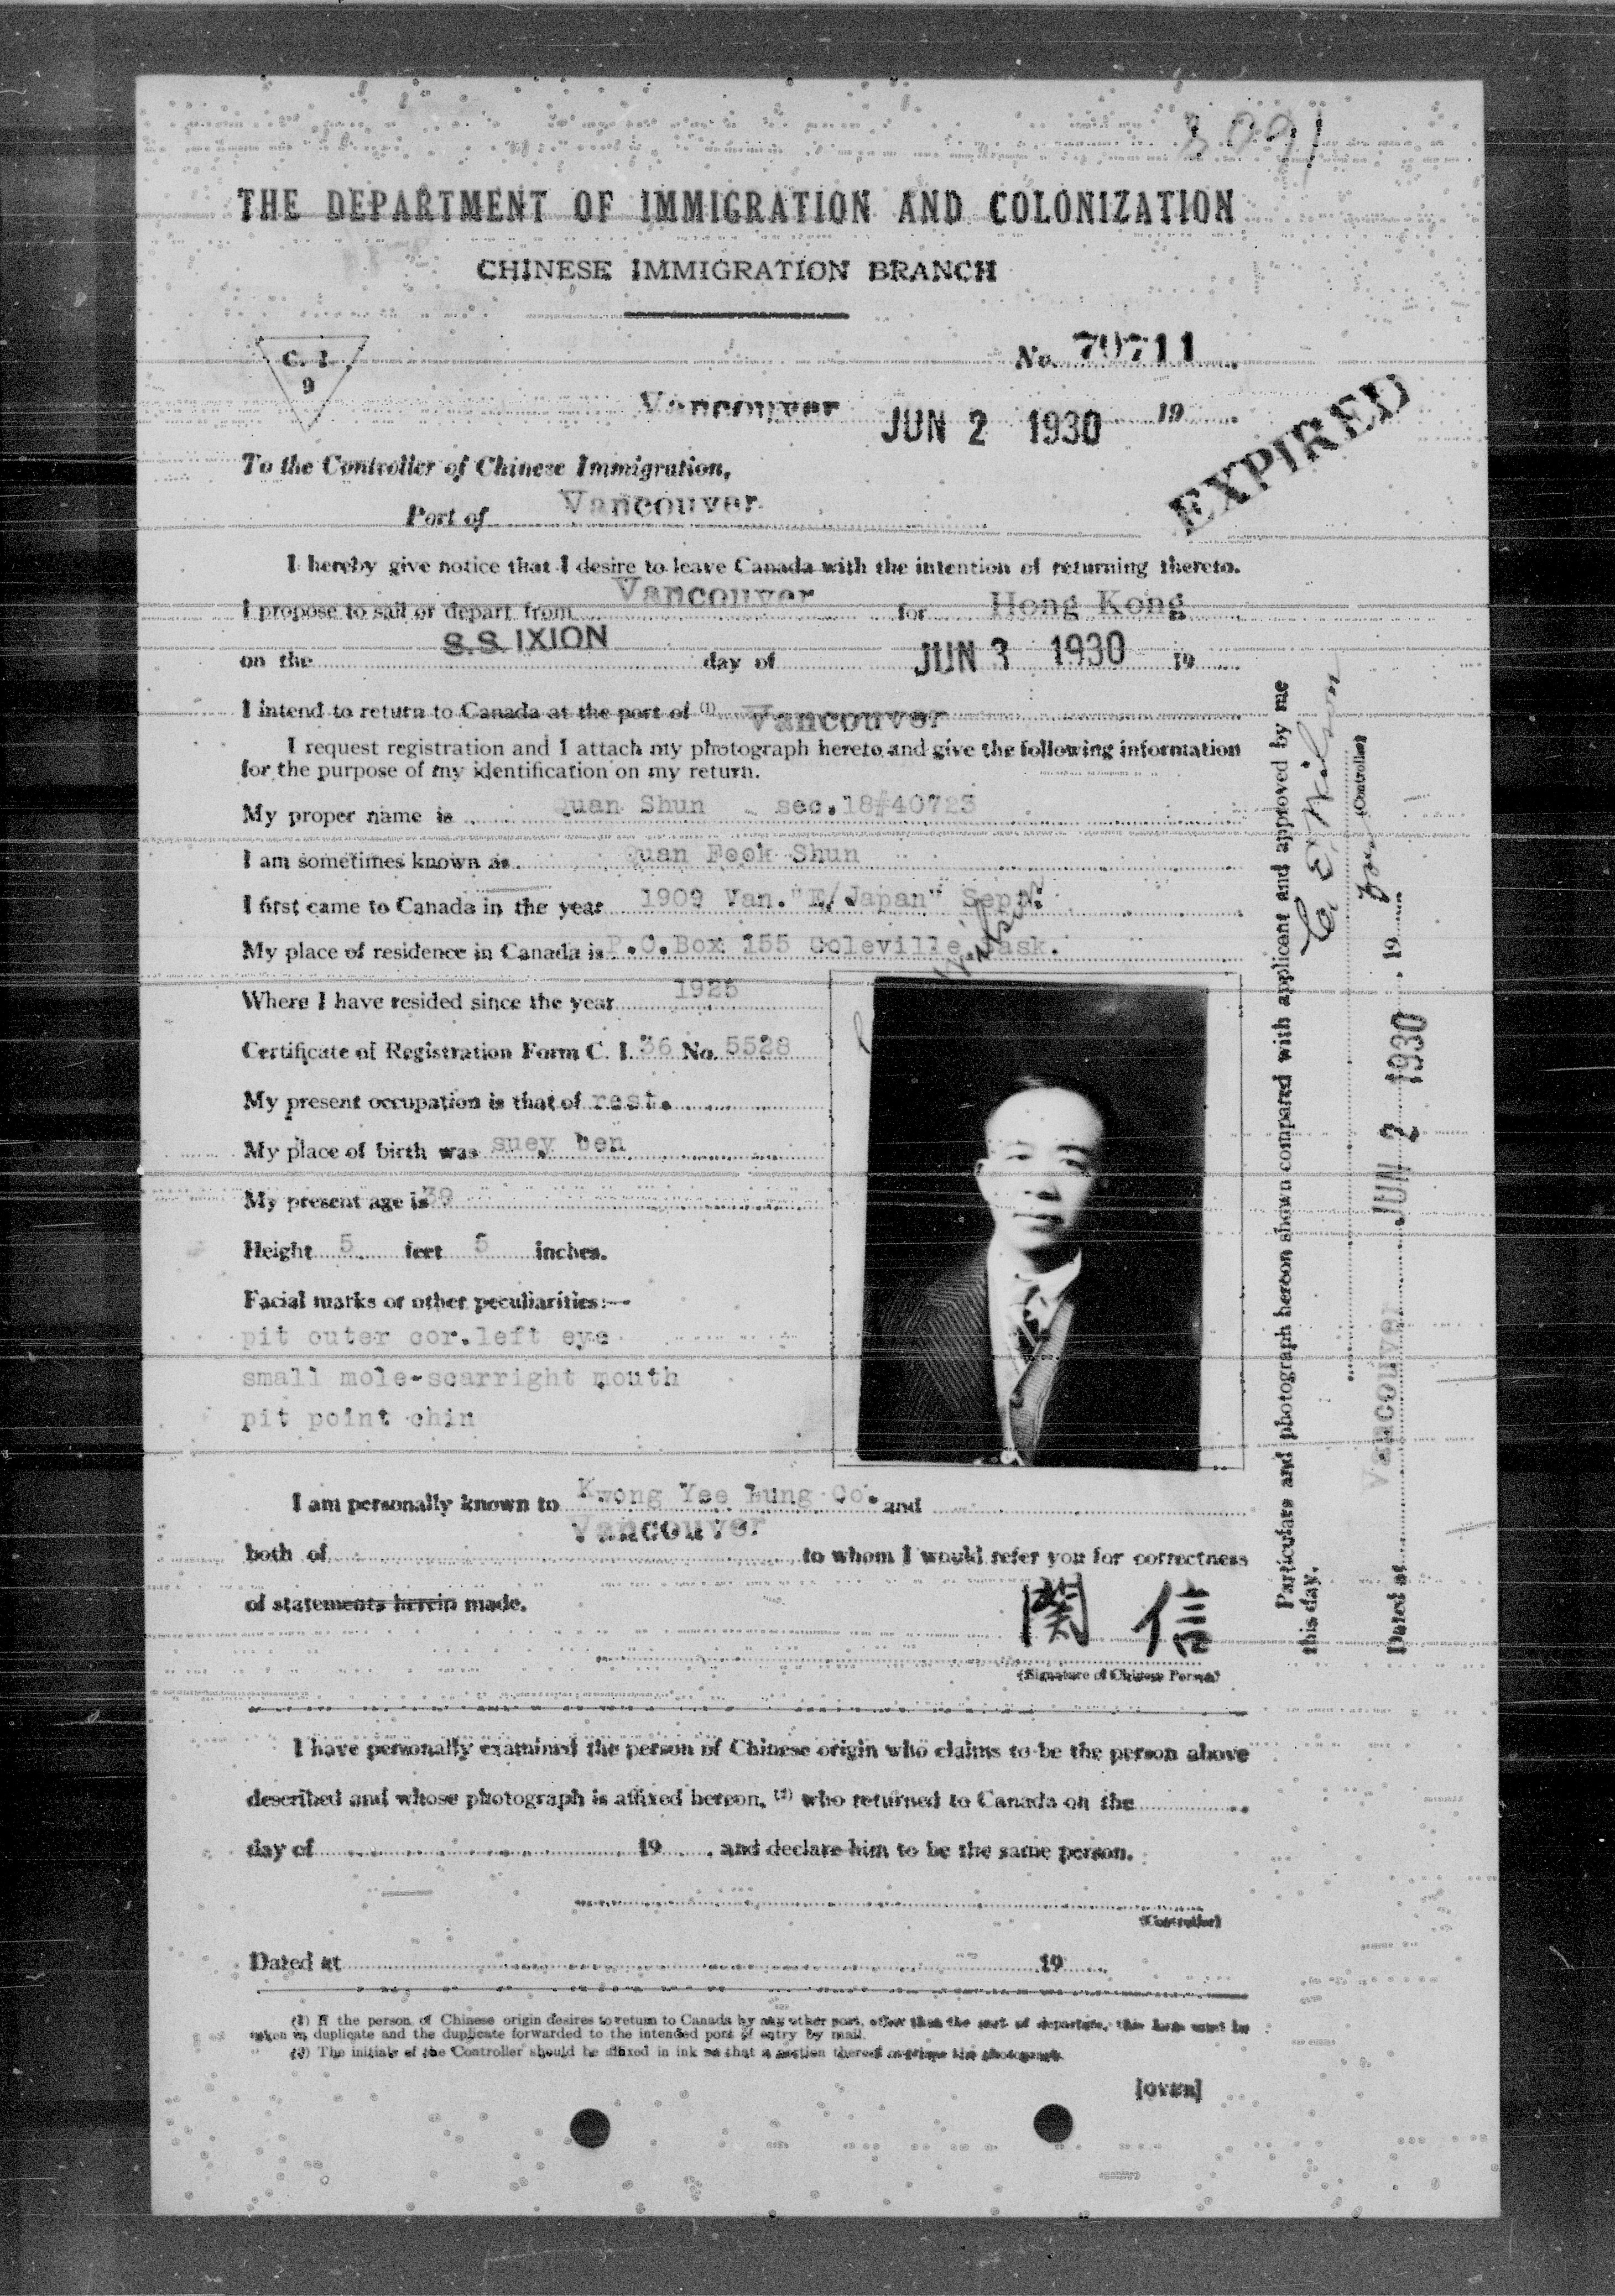 3091
THE DEPARTMENT OF IMMIGRATION AND COLONIZATION
CHINESE IMMIGRATION BRANCH
C. I.
9
No. 70711
Vancouver JUN 2 1930 19
EXPIRED
To the Controller of Chinese Immigration,
Port of Vancouver
I hereby give notice that I desire to leave Canada with the intention of returning thereto.
I propose to sail or depart from Vancouver for Hong Kong
on the S.S. IXION day of JUN 3 1930 19
I intend to return to Canada at the port of (1) Vancouver
I request registration and I attach my photograph hereto and give the following information
for the purpose of my identification on my return.
My proper name is Quan Shun sec.18#40723
I am sometimes known as Quan Fook Shun
I first came to Canada in the year 1909 Van. "E/Japan" Sept.
My place of residence in Canada is P.O.Box 155 Coleville, Sask.
Where I have resided since the year 1925
Certificate of Registration Form C. I. 36 No. 5528
My present occupation is that of rest.
My place of birth was suey ben
My present age is 39
Height 5 feet 5 inches.
Facial marks or other peculiarities:—
pit outer cor.left eye
small mole-scarright mouth
pit point chin
I am personally known to Kwong Yee Lung Co. and
both of Vancouver to whom I would refer you for correctness
of statements herein made.
關 信
(Signature of Chinese Person)
I have personally examined the person of Chinese origin who claims to be the person above
described and whose photograph is affixed hereon, (2) who returned to Canada on the
day of 19 , and declare him to be the same person.
(Controller)
Dated at 19
(1) If the person of Chinese origin desires to return to Canada by any other port, other than the port of departure, this form must be
taken in duplicate and the duplicate forwarded to the intended port of entry by mail.
(2) The initials of the Controller should be affixed in ink so that a portion thereof overlaps the photograph.
[OVER]
Particulars and photograph hereon shown compared with applicant and approved by me
this day.
C. E. Wilson
for (Controller)
Dated at Vancouver JUN 2 1930 19